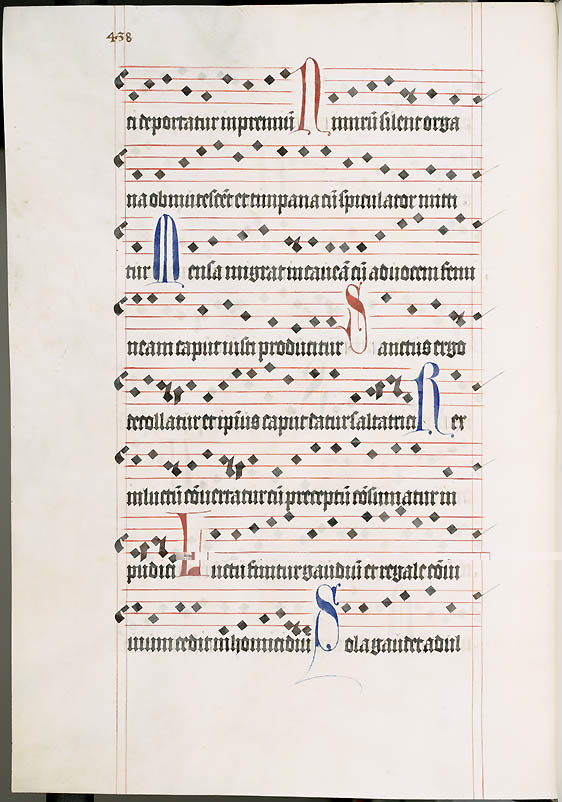 438
ti deportatur in premiū Nimirū silent orga
na obmutescēt et timpana cū spiculator mitti
tur Mensa migrat in caueā cū ad uocem femi
neam caput iusti producitur Sanctus ergo
decollatur et ipīus caput datur saltatrici Rex
in luctū cōuertatur cū preceptū cōsumatur in
pudici Luctu finitur gaudiū et regale cōui
uium cedit in homicidiū Sola gaudet adul